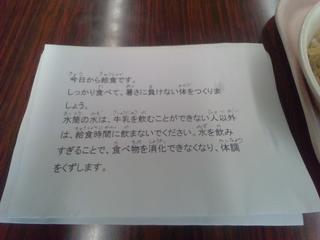 今日から給食です。
しっかり食べて、暑さに負けない体をつくりま
しょう。
水筒の水は、牛乳を飲むことができない人以外
は、給食時間に飲まないでください。水を飲み
すぎることで、食べ物を消化できなくなり、体調
をくずします。